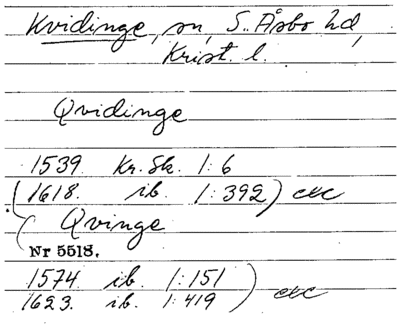 Kvidinge, sn, S. Åsbo hd,
Krist. l.
Qvidinge
1539 Kr. Sk. 1:6
(1618. ib. 1:392) etc
Qvinge
Nr 5518.
1574 ib. 1:151
1623. ib. 1:419) etc